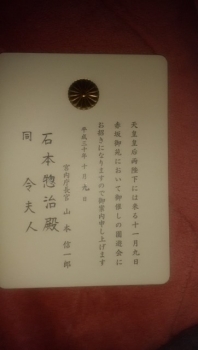 天皇皇后両陛下には来る十一月九日
赤坂御苑において御催しの園遊会に
お招きになりますので御案内申し上げます
平成三十年十月九日
宮内庁長官 山本信一郎
石本惣治殿
同 令夫人